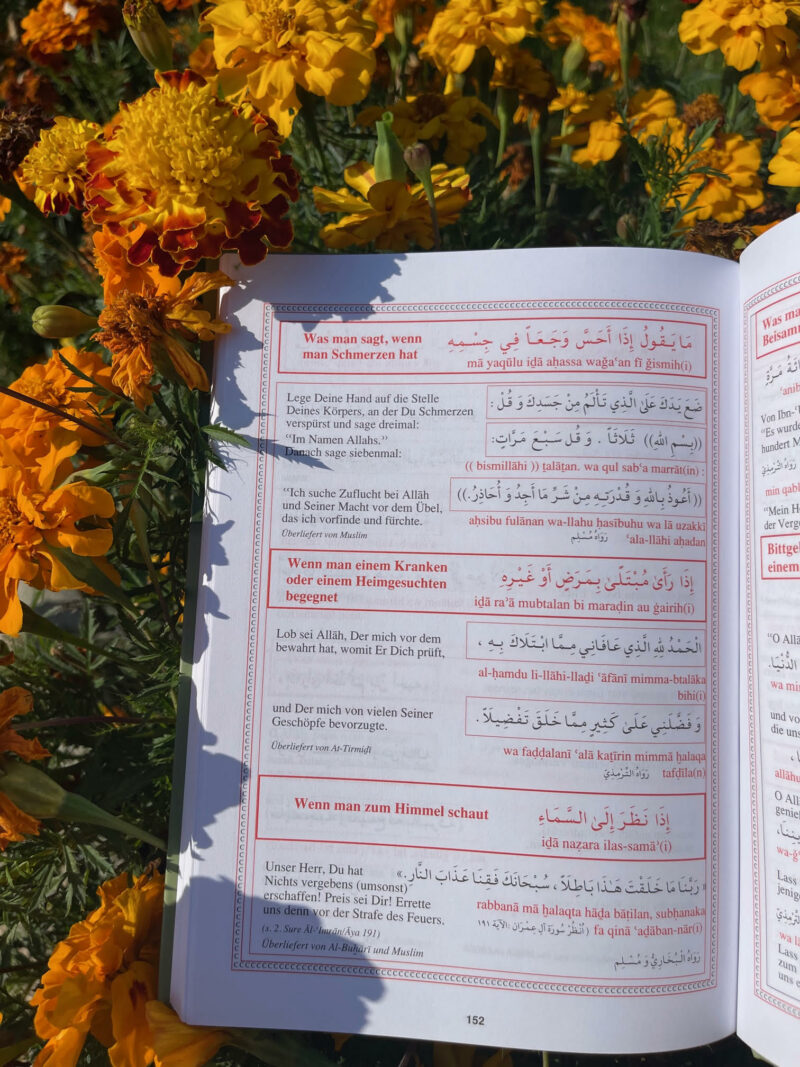 Was man sagt, wenn
man Schmerzen hat
مَا يَقُولُ إِذَا أَحَسَّ وَجَعَاً فِي جِسْمِهِ
mā yaqūlu iḏā aḥassa waǧaʿan fī ǧismih(i)
Lege Deine Hand auf die Stelle
Deines Körpers, an der Du Schmerzen
verspürst und sage dreimal:
“Im Namen Allahs.”
Danach sage siebenmal:
ضَعْ يَدَكَ عَلَى الَّذِي تَأْلَمُ مِنْ جَسَدِكَ وَ قُلْ :
((بِسْمِ اللهِ)) ثَلَاثَاً . وَ قُل سَبْعَ مَرَّاتٍ:
(( bismillāhi )) ṯalāṯan. wa qul sabʿa marrāt(in) :
“Ich suche Zuflucht bei Allāh
und Seiner Macht vor dem Übel,
das ich vorfinde und fürchte.
Überliefert von Muslim
((أَعُوذُ بِاللهِ وَ قُدْرَتِهِ مِنْ شَرِّ مَا أَجِدُ وَ أُحَاذِرُ.))
aḥsibu fulānan wa-llahu ḥasībuhu wa lā uzakkī
ʿala-llāhi aḥadan
رَوَاهُ مُسْلِم
Wenn man einem Kranken
oder einem Heimgesuchten
begegnet
إِذَا رَأَى مُبْتَلَىً بِمَرَضٍ أَوْ غَيْرِهِ
iḏā ra’ā mubtalan bi maraḍin au ġairih(i)
Lob sei Allāh, Der mich vor dem
bewahrt hat, womit Er Dich prüft,
الْحَمْدُ لِلهِ الَّذِي عَافَانِي مِمَّا ابْتَلَاكَ بِهِ ،
al-ḥamdu li-llāhi-llaḏi ʿāfānī mimma-btalāka
bihi(i)
und Der mich von vielen Seiner
Geschöpfe bevorzugte.
Überliefert von At-Tirmiḏi
وَ فَضَّلَنِي عَلَى كَثِيرٍ مِمَّا خَلَقَ تَفْضِيلَاً .
wa faḍḍalanī ʿalā kaṯīrin mimmā ḫalaqa
tafḍīla(n)
رَوَاهُ التِّرْمِذِيّ
Wenn man zum Himmel schaut
إِذَا نَظَرَ إِلَى السَّمَاءِ
iḏā naẓara ilas-samā’(i)
Unser Herr, Du hat
Nichts vergebens (umsonst)
erschaffen! Preis sei Dir! Errette
uns denn vor der Strafe des Feuers.
(s. 2. Sure Āl-ʿImrān/Āya 191)
Überliefert von Al-Buḫārī und Muslim
« رَبَّنَا مَا خَلَقْتَ هَـٰذَا بَاطِلَاً ، سُبْحَانَكَ فَقِنَا عَذَابَ النَّارِ.»
rabbanā mā ḫalaqta hāḏa bāṭilan, subḥanaka
fa qinā ʿaḏāban-nār(i)
( أُنْظُرْ سُورَة آلِ عِمْرَان :الآيَة ١٩١
رَوَاهُ الْبُخَارِيُّ وَ مُسْلِم
152
Was man
Beisam
مَرَّةٍ
Von Ibn-
“Es wurde
hundert M
رَوَاهُ التِّرْمِذِيّ
min qabl
“Mein He
der Verge
Bittge
einem
“O Allā
الدُّنْيَا.
wa mi
und vo
die uns
allāhu
O Allā
genieß
Lass
jenig
wa lā
Lass
zum
uns e